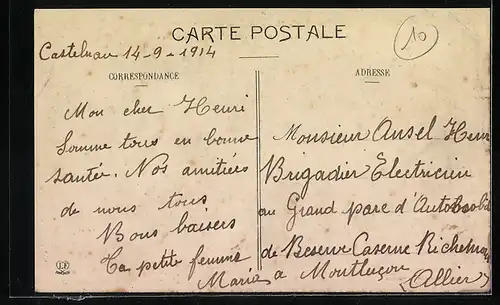 CARTE POSTALE
10
Castelnau 14-9-1914
CORRESPONDANCE
ADRESSE
Mon cher Henri
Somme tous en bonne
santé. Nos amitiérs
de nous tous
Bons baisers
Ta petite femme
Maria
Monsieur Ansel Henri
Brigadier Electricien
au Grand parc d'Automobile
de Reserve Caserne Richemont
a Montluçon
(Allier)